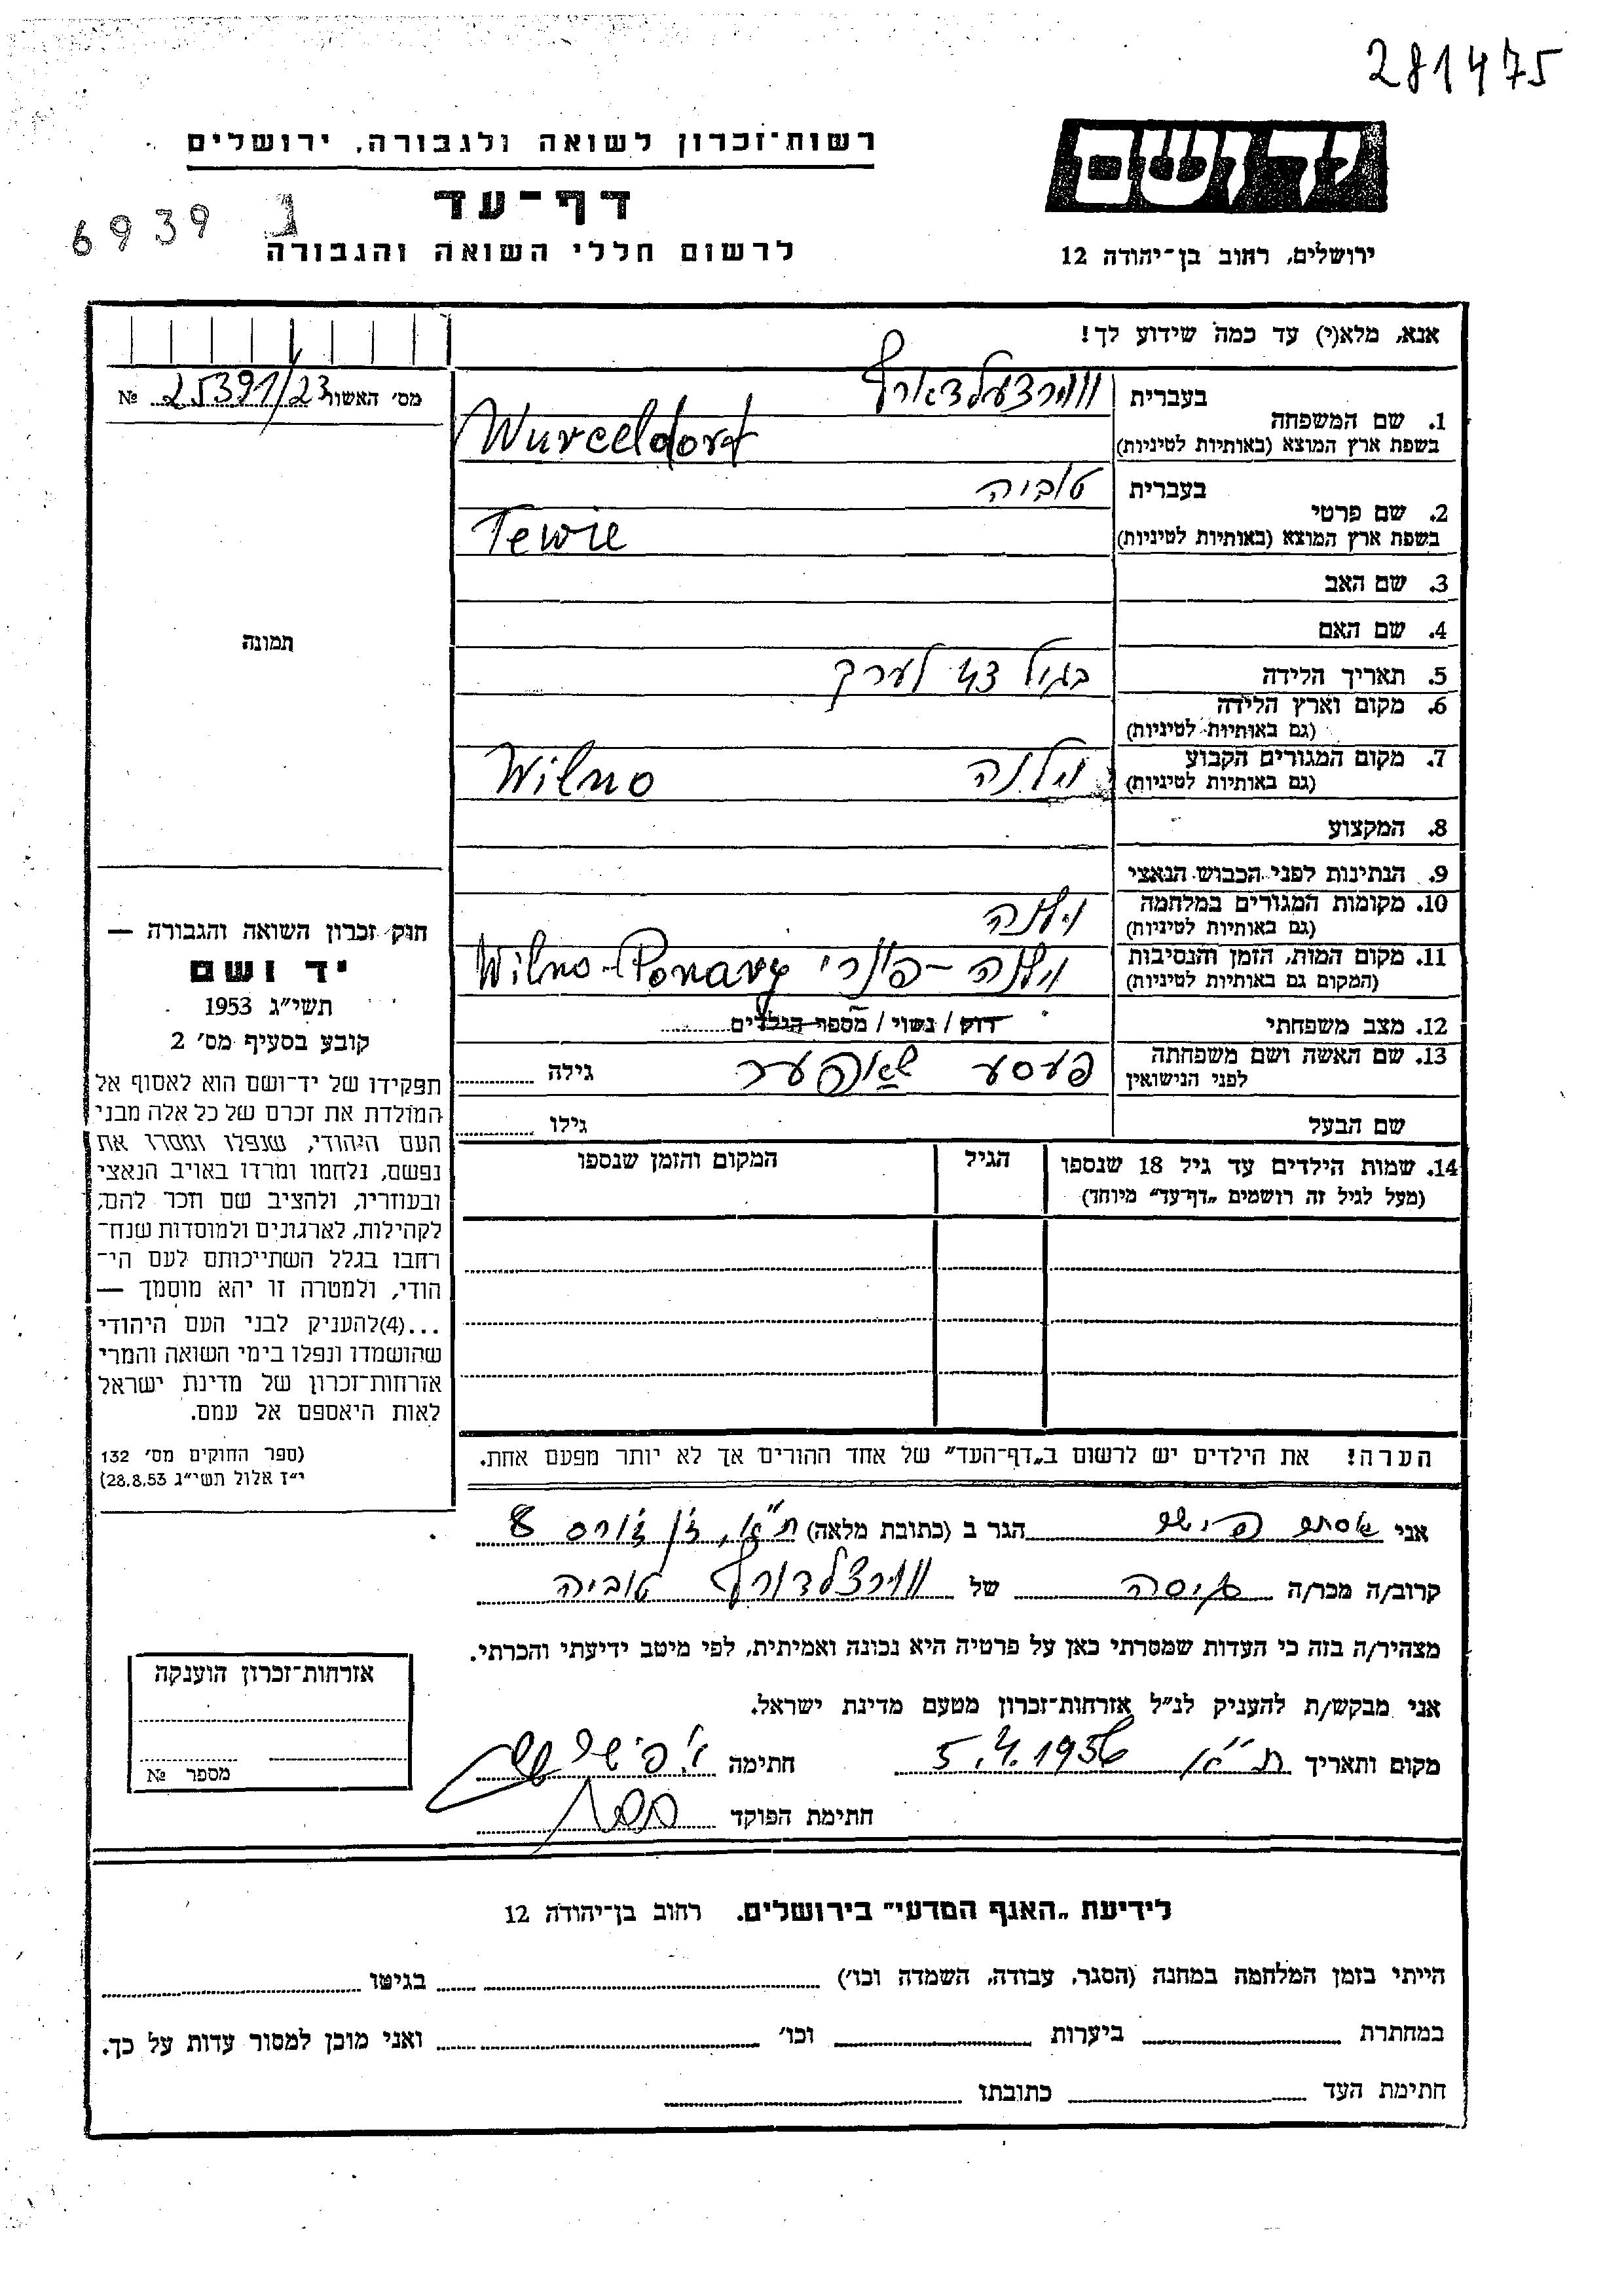 281475
יד ושם
ירושלים, רחוב בן-יהודה 12
רשות-זכרון לשואה ולגבורה, ירושלים
דף-עד
לרשום חללי השואה והגבורה
6939 ג
אנא, מלא(י) עד כמה שידוע לך!
מס׳ האשור 25391/23 №
1. שם המשפחה
בעברית ווורצעלדארף
בשפת ארץ המוצא (באותיות לטיניות) Wurceldorf
2. שם פרטי
בעברית טוביה
בשפת ארץ המוצא (באותיות לטיניות) Tewie
3. שם האב
4. שם האם
5. תאריך הלידה בגיל 43 לערך
6. מקום וארץ הלידה
(גם באותיות לטיניות)
7. מקום המגורים הקבוע וילנה Wilno
(גם באותיות לטיניות)
8. המקצוע
9. הנתינות לפני הכבוש הנאצי
10. מקומות המגורים במלחמה וילנה
(גם באותיות לטיניות)
11. מקום המות, הזמן והנסיבות וילנה - פונרי Wilno-Ponary
(המקום גם באותיות לטיניות)
12. מצב משפחתי רוק / נשוי / מספר הילדים
13. שם האשה ושם משפחתה פעסע גילה
לפני הנישואין
שם הבעל גילו
14. שמות הילדים עד גיל 18 שנספו
(מעל לגיל זה רושמים „דף-עד״ מיוחד)
הגיל
המקום והזמן שנספו
הערה! את הילדים יש לרשום ב„דף-העד״ של אחד ההורים אך לא יותר מפעם אחת.
תמונה
חוק זכרון השואה והגבורה —
יד ושם
תשי״ג 1953
קובע בסעיף מס׳ 2
תפקידו של יד-ושם הוא לאסוף אל
המולדת את זכרם של כל אלה מבני
העם היהודי, שנפלו ומסרו את
נפשם, נלחמו ומרדו באויב הנאצי
ובעוזריו, ולהציב שם וזכר להם,
לקהילות, לארגונים ולמוסדות שנח-
רחבו בגלל השתייכותם לעם הי-
הודי, ולמטרה זו יהא מוסמך —
...(4)להעניק לבני העם היהודי
שהושמדו ונפלו בימי השואה והמרי
אזרחות-זכרון של מדינת ישראל
לאות היאספם אל עמם.
(ספר החוקים מס׳ 132
י״ז אלול תשי״ג 28.8.53)
אני אסתר פישר הגר ב (כתובת מלאה) ת״א, ז׳ן ז׳ורס 8
קרוב/ה מכר/ה גיסה של וורצלדורף טוביה
מצהיר/ה בזה כי העדות שמסרתי כאן על פרטיה היא נכונה ואמיתית, לפי מיטב ידיעתי והכרתי.
אני מבקש/ת להעניק לנ״ל אזרחות-זכרון מטעם מדינת ישראל.
מקום ותאריך ת״א 5.4.1956 חתימה א. פישר
חתימת הפוקד
אזרחות-זכרון הוענקה
מספר №
לידיעת „האגף המדעי״ בירושלים. רחוב בן-יהודה 12
הייתי בזמן המלחמה במחנה (הסגר, עבודה, השמדה וכו׳) בגיטו
במחתרת ביערות וכו׳ ואני מוכן למסור עדות על כך.
חתימת העד כתובתו